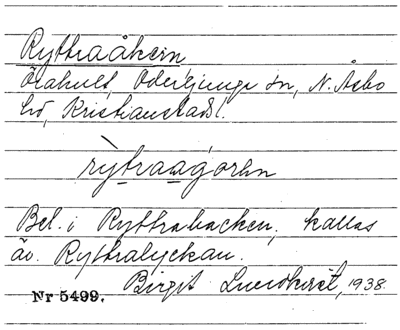 Ryttraåkern
Örahult, Oderljunga sn, N. Åsbo
hd, Kristianstads l.
rỳtraagorhn
Bel. i Ryttrabacken, kallas
äv. Ryttralyckan.
Birgit Lundkvist, 1938.
Nr 5499.